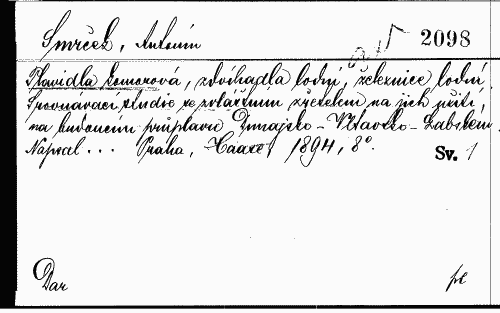 Smrček, Antonín 2098
Plavidla komorová, zdvihadla lodní, železnice lodní.
Srovnávací studie se zvláštním zřetelem na jich užití
na budoucím průplavu Dunajsko-Vltavsko-Labském.
Napsal... Praha, Haase, 1894, 8°. Sv. 1
Dar